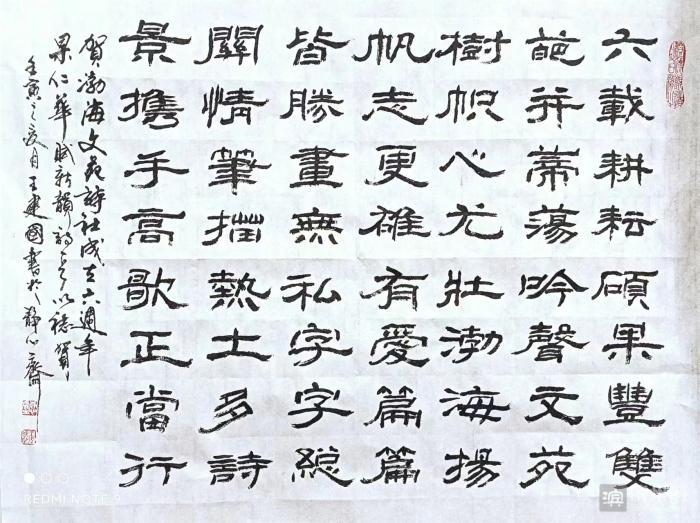 六載耕耘碩果豐雙
葩并蒂蕩吟聲文苑
樹幟心尤壯渤海揚
帆志更雄有愛篇篇
皆勝畫無私字字總
關情筆摧熱土多詩
景攜手高歌正當行
賀渤海文苑詩社成立六週年
果仁華賦新韻詩以賀
壬寅之夏月王建國書於靜心齋
REDMI NOTE 9
滨